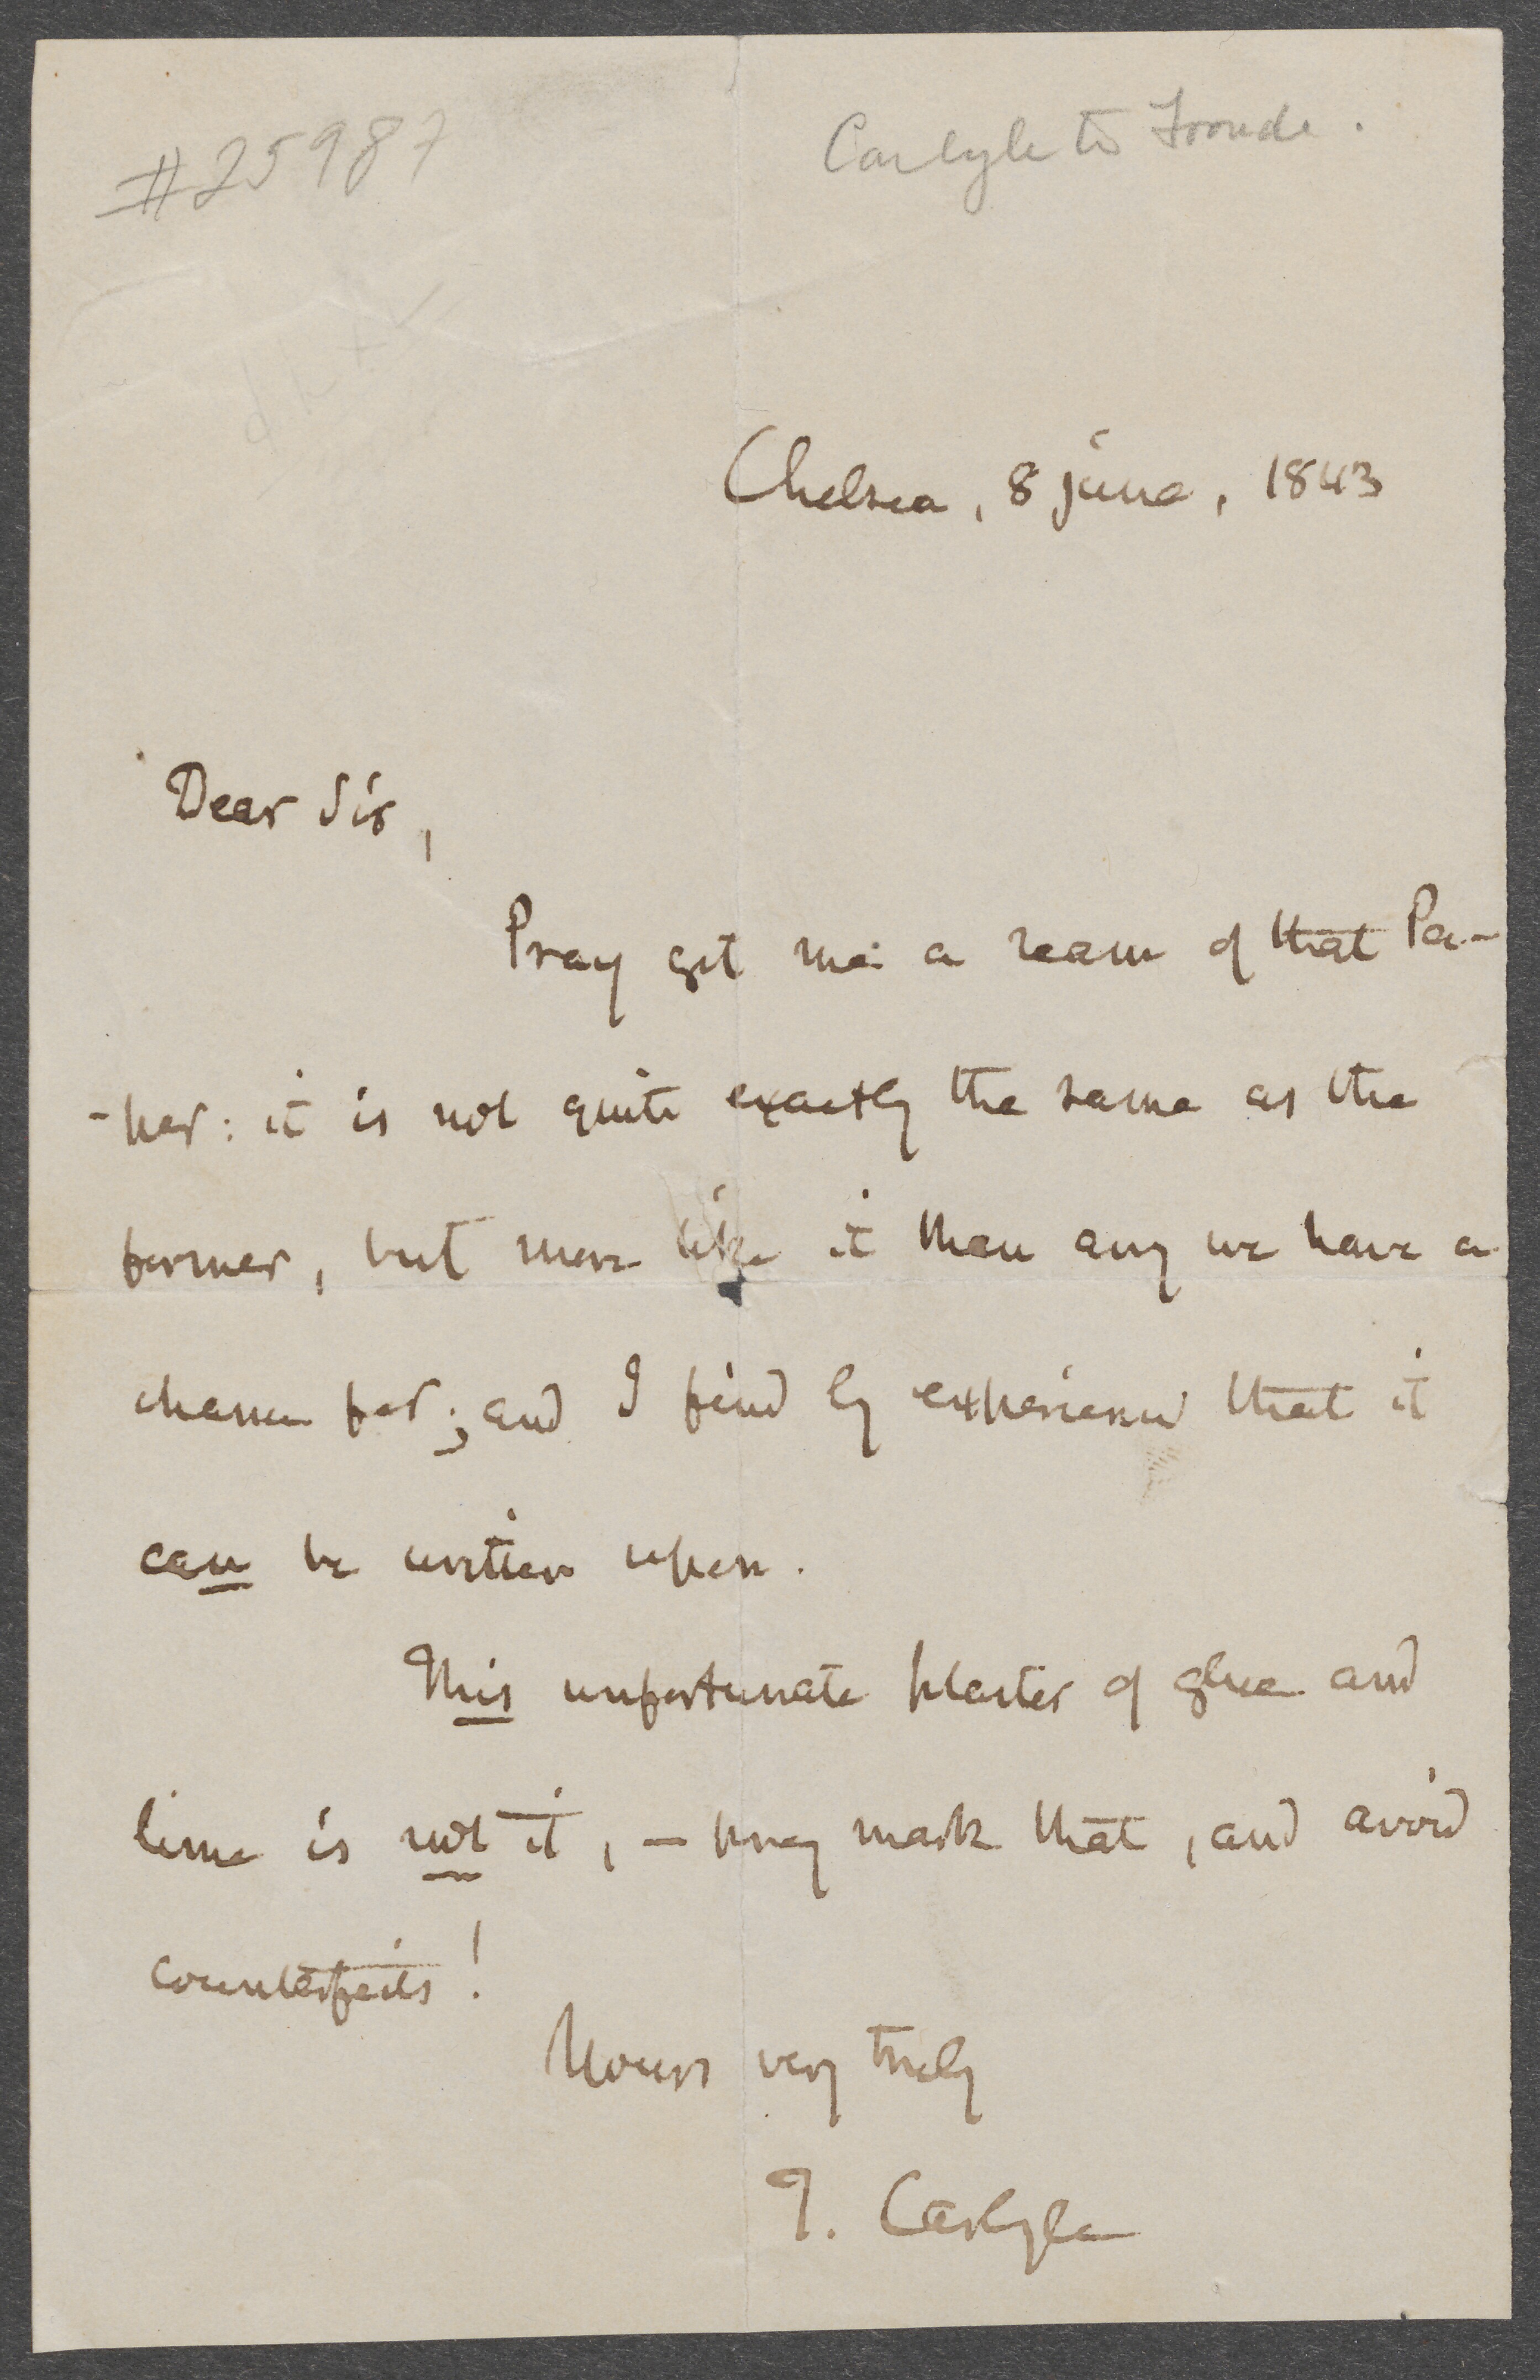 #25987
Carlyle to Froude.
Chelsea, 8 june, 1843
Dear Sir,
Pray get me a ream of that Pa-
-per: it is not quite exactly the same as the
former, but more like it than any we have a
chance for; and I find by experience that it
can be written upon.
This unfortunate plaster of glue and
lime is not it, — pray mark that, and avoid
counterfeits!
Yours very truly
T. Carlyle